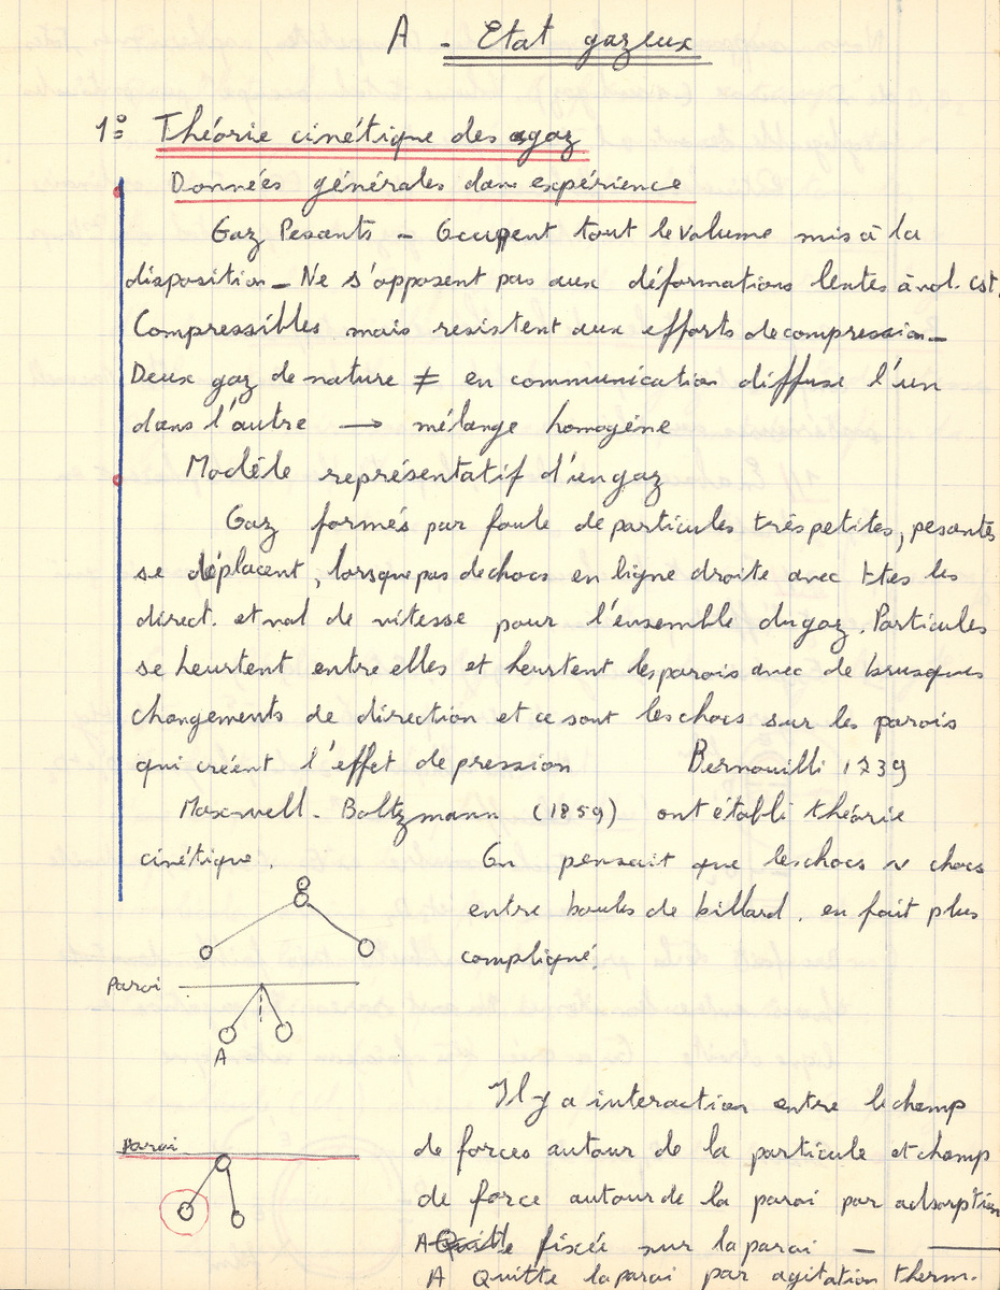 A - Etat gazeux
1º Théorie cinétique des gaz
Données générales dans expérience
Gaz Pesants - Occupent tout le volume mis à la
disposition - Ne s'opposent pas aux déformations lentes à vol. cst.
Compressibles mais resistent aux efforts de compression -
Deux gaz de nature ≠ en communication diffuse l'un
dans l'autre → mélange homogène
Modèle représentatif d'un gaz
Gaz formés par foule de particules très petites, pesantes
se déplacent, lorsque pas de chocs en ligne droite avec ttes les
direct. et val de vitesse pour l'ensemble du gaz. Particules
se heurtent entre elles et heurtent les parois avec de brusques
changements de direction et ce sont les chocs sur les parois
qui créent l'effet de pression Bernouilli 1739
Maxwell - Boltzmann (1859) ont établi théorie
cinétique. On pensait que les chocs ~ chocs
entre boules de billard. en fait plus
compliqué.
Paroi
A
Il y a interaction entre le champ
Paroi
de forces autour de la particule et champ
de force autour de la paroi par adsorption
A fixée sur la paroi -
A Quitte la paroi par agitation therm.